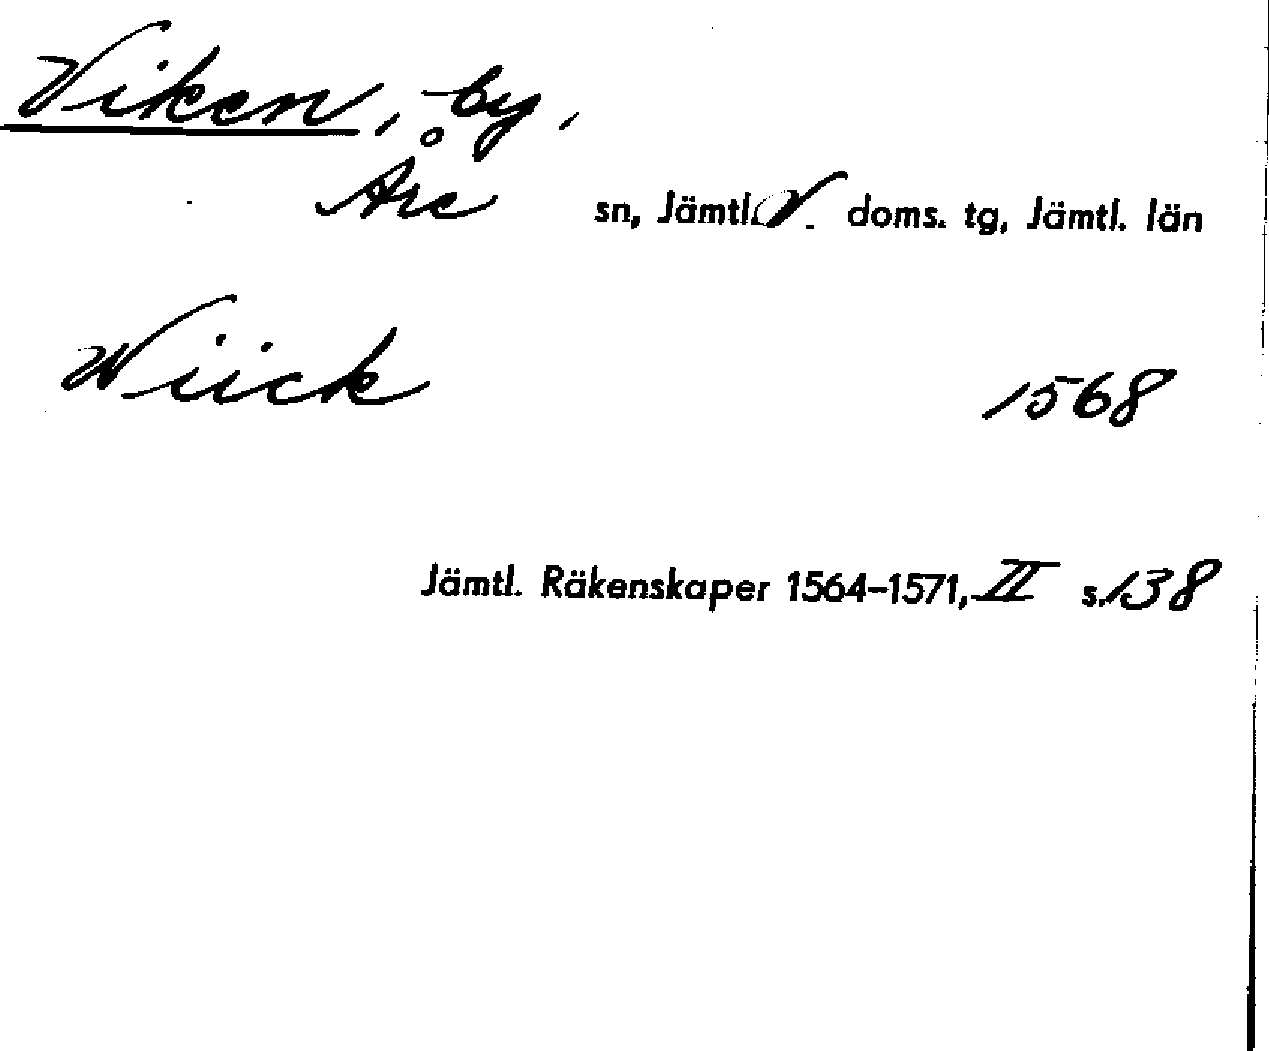 Viken, by,
Åre sn, Jämtl. V. doms. tg, Jämtl. län
Wiick 1568
Jämtl. Räkenskaper 1564-1571, II s. 138